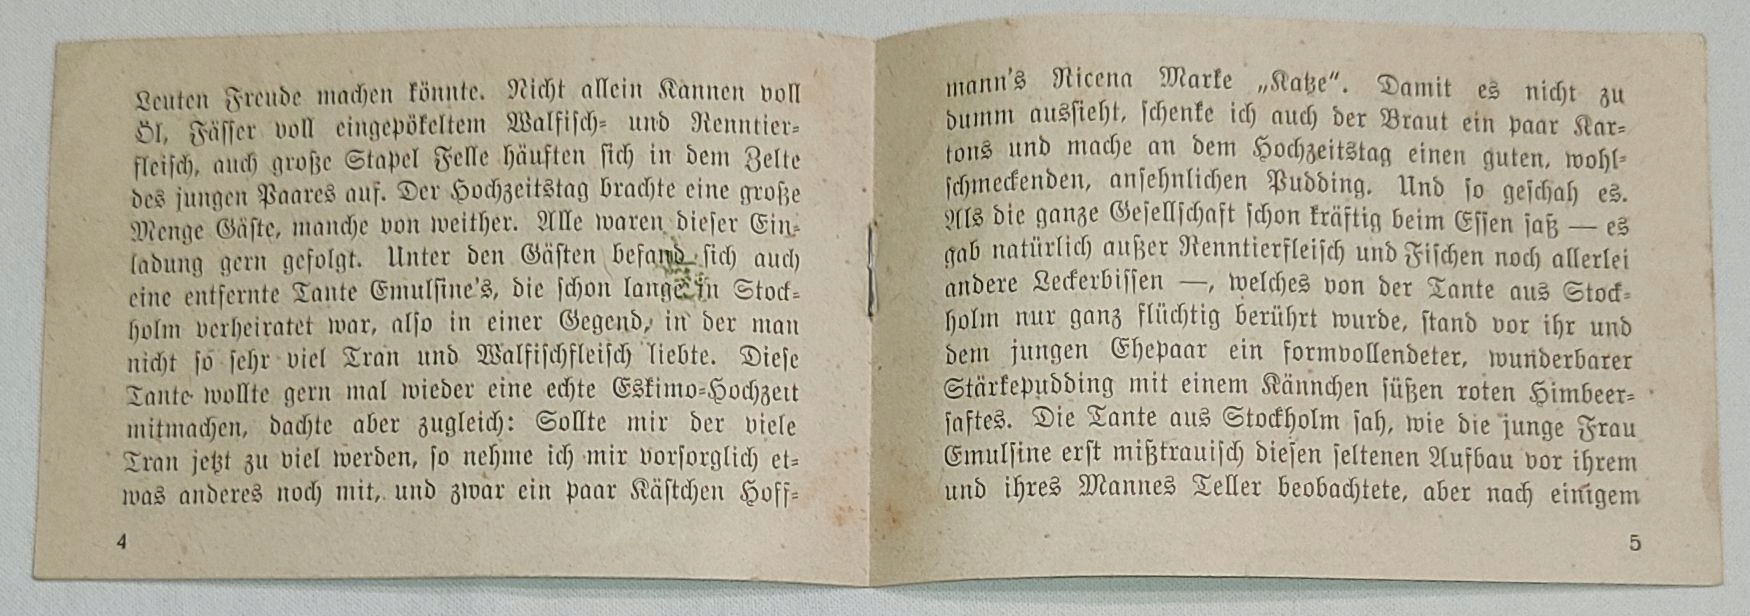 Leuten Freude machen könnte. Nicht allein Kannen voll
Öl, Fässer voll eingepökeltem Walfisch- und Renntier-
fleisch, auch große Stapel Felle häuften sich in dem Zelte
des jungen Paares auf. Der Hochzeitstag brachte eine große
Menge Gäste, manche von weither. Alle waren dieser Ein-
ladung gern gefolgt. Unter den Gästen befand sich auch
eine entfernte Tante Emulsine's, die schon lange in Stock-
holm verheiratet war, also in einer Gegend, in der man
nicht so sehr viel Tran und Walfischfleisch liebte. Diese
Tante wollte gern mal wieder eine echte Eskimo-Hochzeit
mitmachen, dachte aber zugleich: Sollte mir der viele
Tran jetzt zu viel werden, so nehme ich mir vorsorglich et-
was anderes noch mit, und zwar ein paar Kästchen Hoff-
4
mann's Nicena Marke „Katze“. Damit es nicht zu
dumm aussieht, schenke ich auch der Braut ein paar Kar-
tons und mache an dem Hochzeitstag einen guten, wohl-
schmeckenden, ansehnlichen Pudding. Und so geschah es.
Als die ganze Gesellschaft schon kräftig beim Essen saß — es
gab natürlich außer Renntierfleisch und Fischen noch allerlei
andere Leckerbissen —, welches von der Tante aus Stock-
holm nur ganz flüchtig berührt wurde, stand vor ihr und
dem jungen Ehepaar ein formvollendeter, wunderbarer
Stärkepudding mit einem Kännchen süßen roten Himbeer-
saftes. Die Tante aus Stockholm sah, wie die junge Frau
Emulsine erst mißtrauisch diesen seltenen Aufbau vor ihrem
und ihres Mannes Teller beobachtete, aber nach einigem
5